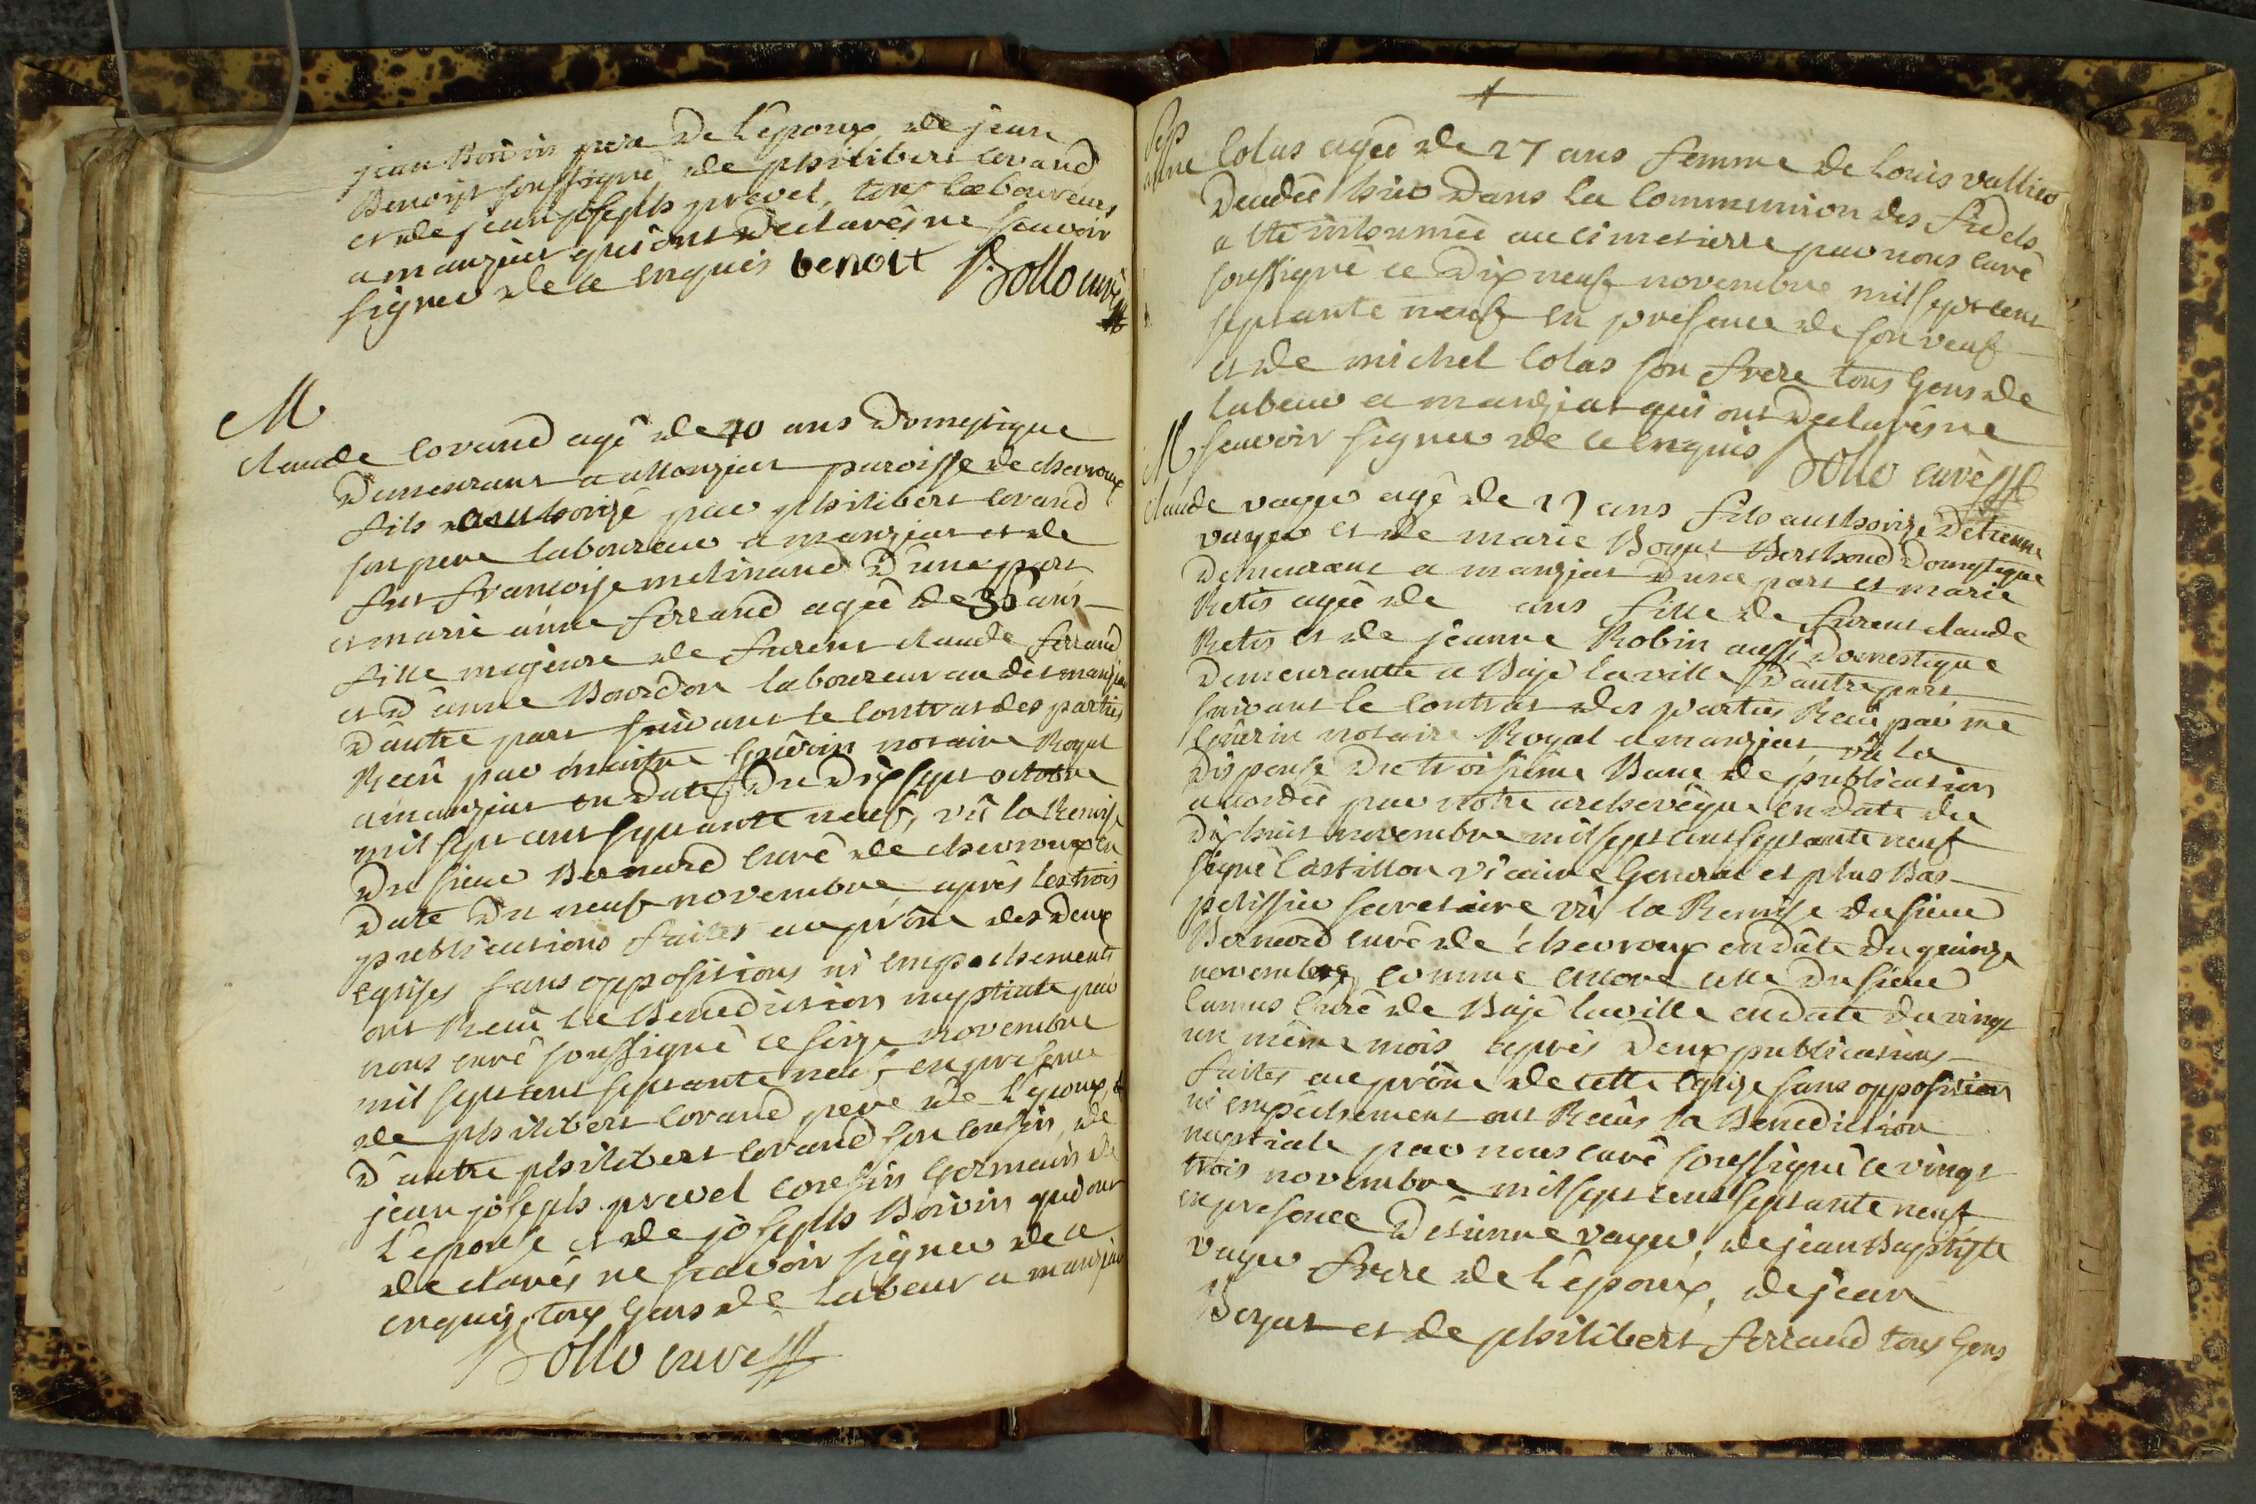 jean Boivin pere de l'epoux, de jean
Benoist soussigné de philibert Corand
et de jean joseph prevel, tous laboureurs
a manziat qui ont declarés ne scavoir
signer de ce enquis benoit Bollo curé
M
Claude Corand agé de 40 ans domestique
demeurant a Manziat paroisse de chevroux
fils authorizé par philibert Corand
son pere laboureur a manziat et de
fut francoise melinand d'une part
et marie anne ferrand agée de 30 ans
fille majeure de furent claude ferrand
et d'anne Bourdon laboureur au dit manziat
d'autre part suivant le Contrat des parties
Recû par maitre Guérin notaire Royal
a manziat en date du dix sept octobre
mil sept cent septante neuf, vû la Remise
du sieur Bernard curé de chevroux en
date du neuf novembre, après les trois
publications faites au prône des deux
eglises sans oppositions ni empechements
ont Recû la Benediction nuptiale par
nous curé soussigné ce seize novembre
mil sept cent septante neuf, en presence
de philibert Corand pere de l'epoux, et
d'autre philibert Corand son cousin, de
jean joseph prevel cousin Germain de
l'epouse et de joseph Boivin qui ont
declarés ne scavoir signer de ce
enquis, tous Gens de labeur a manziat
Bollo curé
Sep
anne Colas agée de 27 ans femme de Louis vallier
decedée hier dans la Communion des fidels
a été inhumée au cimetierre par nous curé
soussigné ce dix neuf novembre mil sept cent
septante neuf en presence de son veuf
et de michel Colas son frere tous Gens de
labeur a manziat qui ont declarés ne
scavoir signer de ce enquis Bollo curé
M
Claude vayer agé de 27 ans fils authorizé d'etienne
vayer et de marie Boyat Berthoud domestique
demeurant a manziat d'une part et marie
Retis agée de ans fille de furent claude
Retis et de jeanne Robin aussi domestique
demeurante a Bajé la ville d'autre part
suivant le Contrat des parties Recû par me
Guérin notaire Royal a manziat, vû la
dispense du troisième Banc de publication
accordée par notre archevêque en date du
dix huit novembre mil sept cent septante neuf
signé Castillon vicaire General et plus Bas
pelissier secretaire vû la Remise du sieur
Bernard curé de chevroux en date du quinze
novembre comme encore celle du sieur
Camus Curé de Bajé la ville en date du vingt
un même mois après deux publications
faites au prône de cette Eglise sans opposition
ni empêchement ont Recûs la Benediction
nuptiale par nous curé soussigné ce vingt
trois novembre mil sept cent septante neuf
en presence d'etienne vayer, de jean Baptiste
vayer frere de l'epoux, de jean
Boyat et de philibert ferrand tous Gens